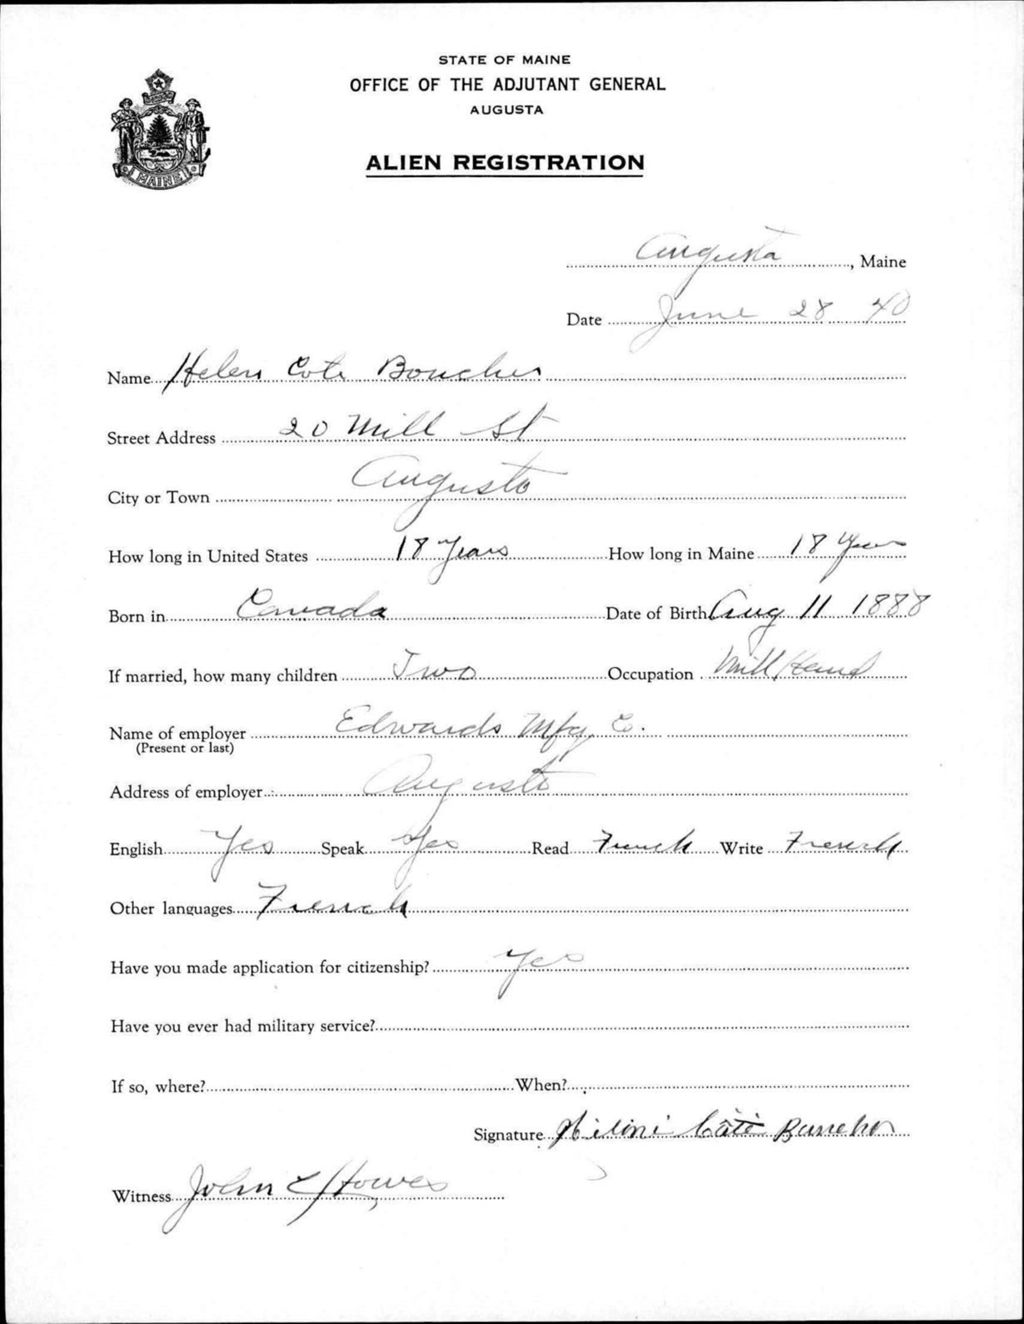 STATE OF MAINE
OFFICE OF THE ADJUTANT GENERAL
AUGUSTA
MAINE
ALIEN REGISTRATION
Augusta, Maine
Date June 28 40
Name Helen Cote Boucher
Street Address 20 Mill St
City or Town Augusta
How long in United States 18 Years How long in Maine 18 Years
Born in Canada Date of Birth Aug 11 1888
If married, how many children Two Occupation Mill Hand
Name of employer Edwards Mfg Co.
(Present or last)
Address of employer Augusta
English Yes Speak Yes Read French Write French
Other languages French
Have you made application for citizenship? Yes
Have you ever had military service?
If so, where? When?
Signature Côté
Witness John E Howes